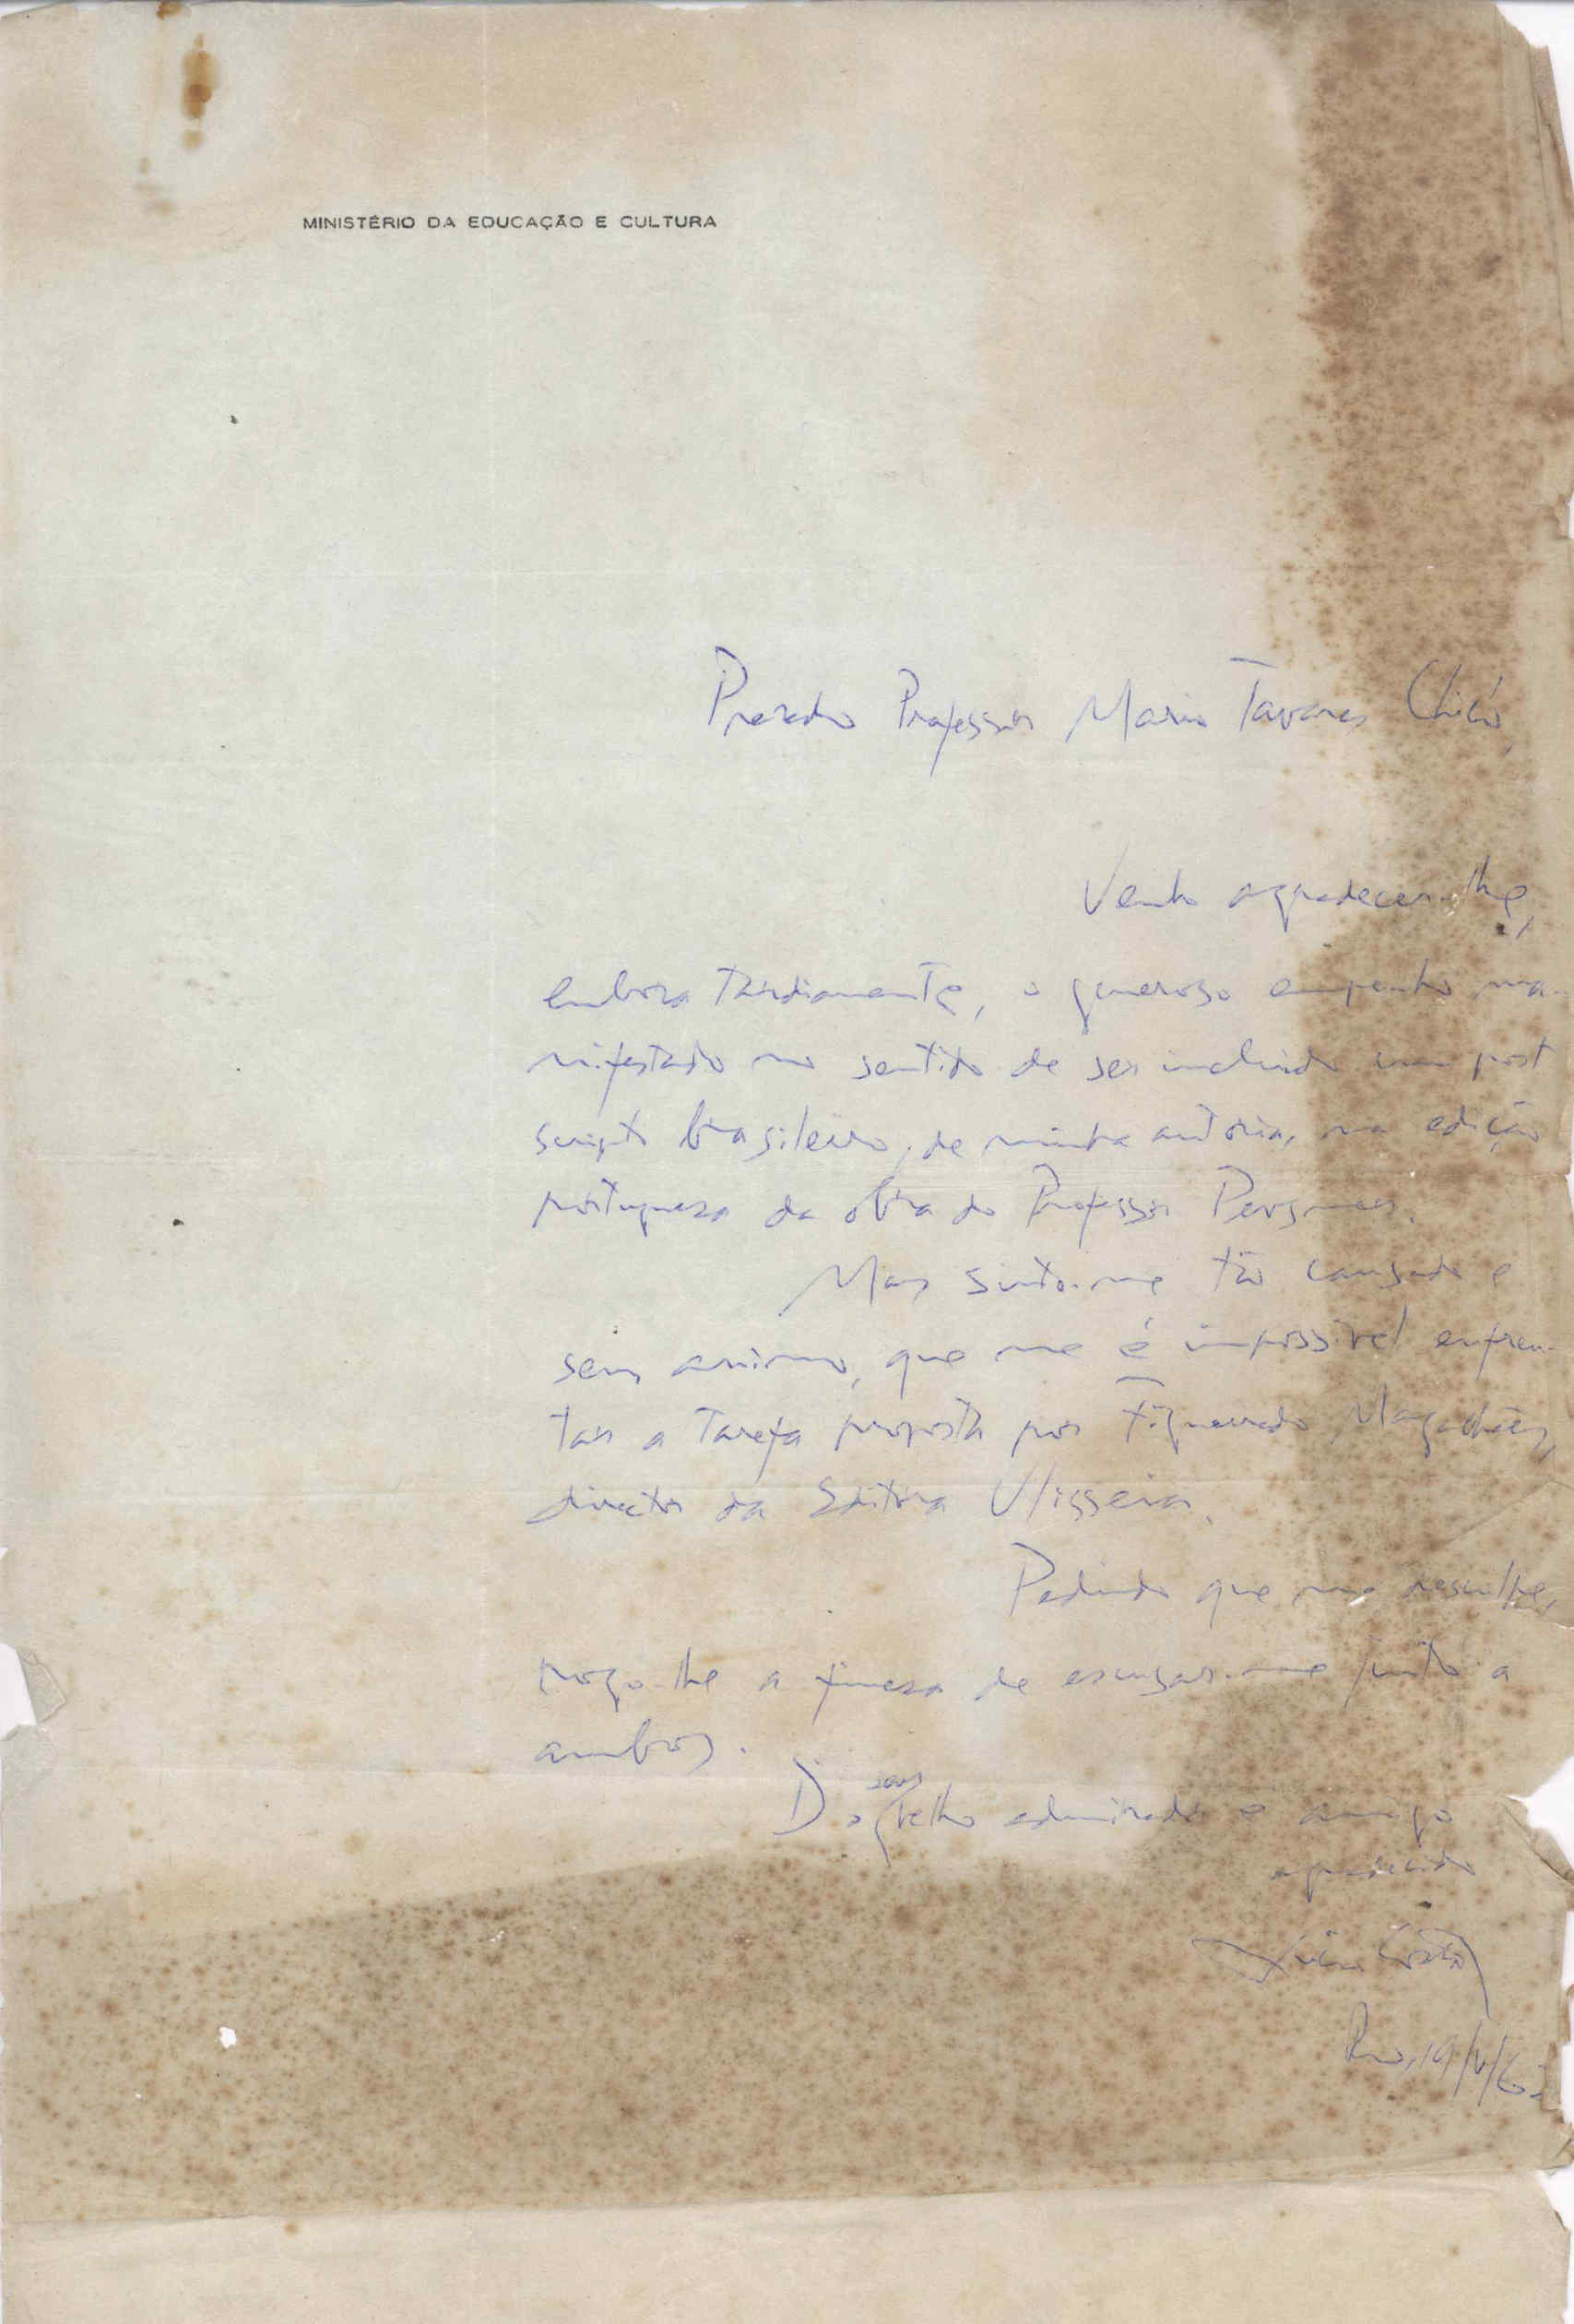 MINISTÉRIO DA EDUCAÇÃO E CULTURA
Prezado Professor Mario Tavares Chicó,
Venho agradecer-lhe,
embora tardiamente, o generoso empenho ma-
nifestado no sentido de ser incluido um post
scripto brasileiro, de minha autoria, na edição
portuguesa da obra do Professor Pevsner.
Mas sinto-me tão cansado e
sem animo, que me é impossivel enfren-
tar a tarefa proposta por Figueiredo Magalhães,
director da Editora Ulisseia.
Pedindo que me desculpe,
rogo-lhe a fineza de escusar-me junto a
ambos.
Do seu velho admirador e amigo
agradecido
Lucio Costa
Rio, 19/V/62